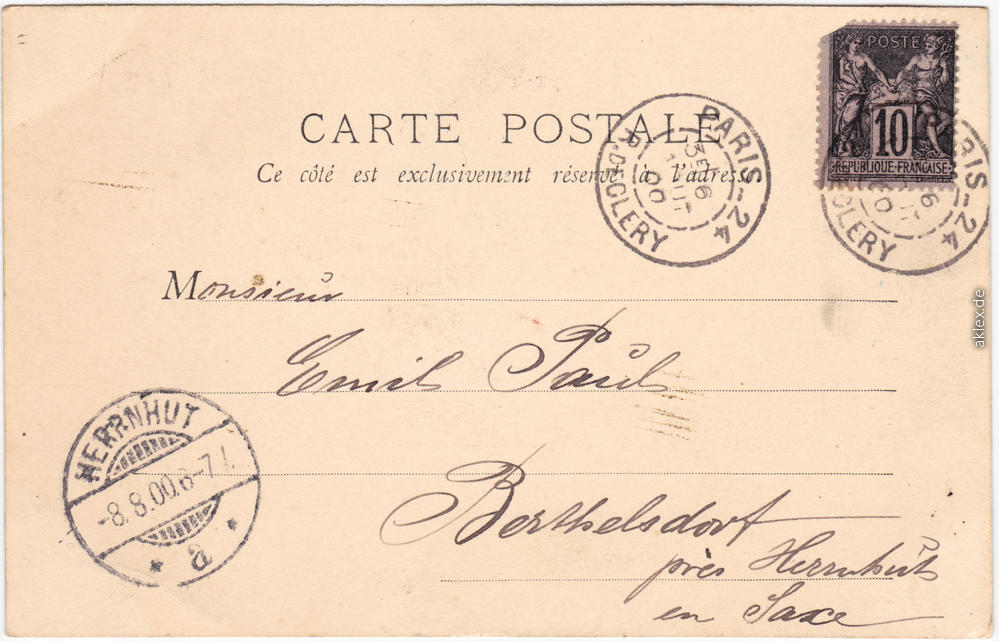 POSTE
10
REPUBLIQUE FRANÇAISE
CARTE POSTALE
Ce côté est exclusivement réservé à l'adresse
PARIS-24
R. DE CLERY
3E
6
00
PARIS-24
CLERY
6
00
Monsieur
Emil Paul
HERRNHUT
-8.8.00.6-7
a
Berthelsdorf
près Herrnhut
en Saxe
aklex.de